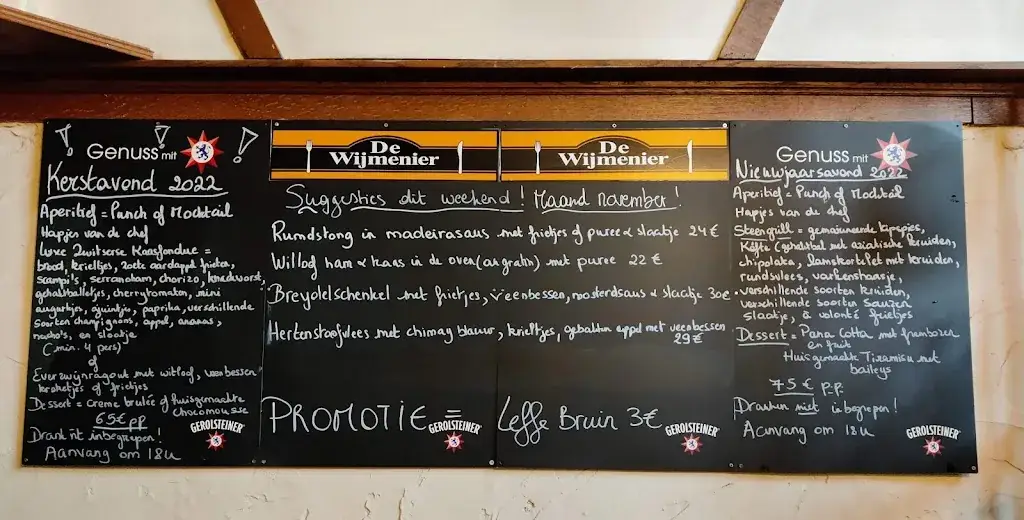 Genuss mit
Kerstavond 2022
Aperitief = Punch of Mocktail
Hapjes van de chef
Luxe Zwitserse Kaasfondue =
brood, krieltjes, zoete aardappel frieten,
scampi's, serranoham, chorizo, knackworst,
gehaktballetjes, cherrytomaten, mini
augurkjes, ajuintjes, paprika, verschillende
soorten champignons, appel, ananas,
nacho's, en slaatje
(min. 4 pers)
of
Everzwijnragout met witloof, veenbessen
kroketjes of frietjes
Dessert = Creme brulée of huisgemaakte
chocomousse
65€ pp
Drank nt inbegrepen!
Aanvang om 18u
GEROLSTEINER
De
Wijmenier
De
Wijmenier
Suggesties dit weekend! Maand november!
Rundstong in madeirasaus met frietjes of puree & slaatje 24€
Witlof ham & kaas in de oven (au gratin) met puree 22€
Breydelschenkel met frietjes, veenbessen, mosterdsaus & slaatje 30€
Hertenstoofvlees met chimay blauw, krieltjes, gebakken appel met veenbessen
29€
PROMOTIE = Leffe Bruin 3€
GEROLSTEINER
GEROLSTEINER
Genuss mit
Nieuwjaarsavond 2022
Aperitief = Punch of Mocktail
Hapjes van de chef
Steengrill = gemarineerde kipspies,
Köfte (gehaktbal met aziatische kruiden,
chipolata, lamskotelet met kruiden,
rundsvlees, varkenshaasje,
verschillende soorten kruiden,
verschillende soorten sauzen
slaatje, à volonté frietjes
Dessert = Pana Cotta met frambozen
en fruit
Huisgemaakte Tiramisu met
baileys
75€ p.p.
Dranken niet inbegrepen!
Aanvang om 18u
GEROLSTEINER